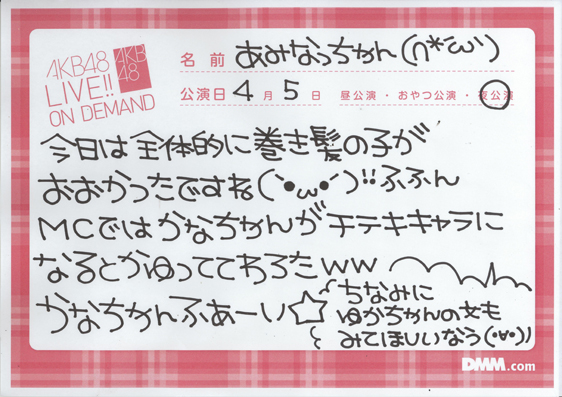 AKB48
LIVE!!
ON DEMAND
AKB
48
名前 あみなっちゃん(∩*´ω`)
公演日 4月5日 昼公演・おやつ公演・夜公演
今日は全体的に巻き髪の子が
おおかったですね(´・ω・`)!!ふふん
MCではかなちゃんがチテキキャラに
なるとかゆっててわろたww
かなちゃんふぁーい☆
ちなみに
ゆかちゃんの文も
みてほしいなう(・∀・)ノ
DMM.com